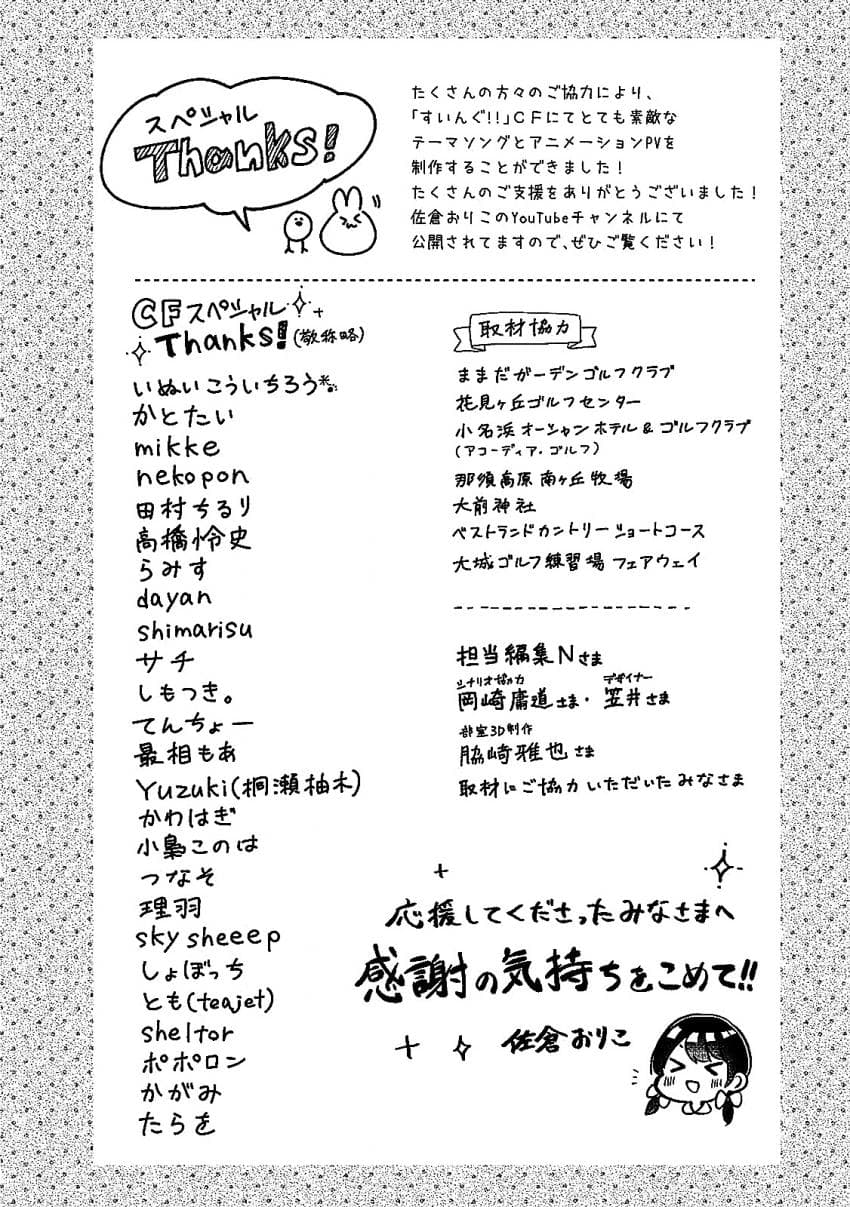 スペシャル
Thanks!
たくさんの方々のご協力により、
「すいんぐ!!」CFにてとても素敵な
テーマソングとアニメーションPVを
制作することができました！
たくさんのご支援をありがとうございました！
佐倉おりこのYouTubeチャンネルにて
公開されてますので、ぜひご覧ください！
CFスペシャル
Thanks!(敬称略)
いぬいこういちろう
かとたい
mikke
nekopon
田村ちるり
高橋怜史
らみす
dayan
shimarisu
サチ
しもつき。
てんちょー
最相もあ
Yuzuki(桐瀬柚木)
かわはぎ
小梟このは
つなそ
理羽
sky sheeep
しょぼっち
とも(teajet)
sheltor
ポポロン
かがみ
たらを
取材協力
ままだガーデンゴルフクラブ
花見ヶ丘ゴルフセンター
小名浜オーシャンホテル＆ゴルフクラブ
(アコーディア・ゴルフ)
那須高原南ヶ丘牧場
大前神社
ベストランドカントリーショートコース
大城ゴルフ練習場フェアウェイ
担当編集Nさま
シナリオ協力 デザイナー
岡崎庸道さま・笠井さま
部室3D制作
脇崎雅也さま
取材にご協力いただいたみなさま
応援してくださったみなさまへ
感謝の気持ちをこめて!!
佐倉おりこ